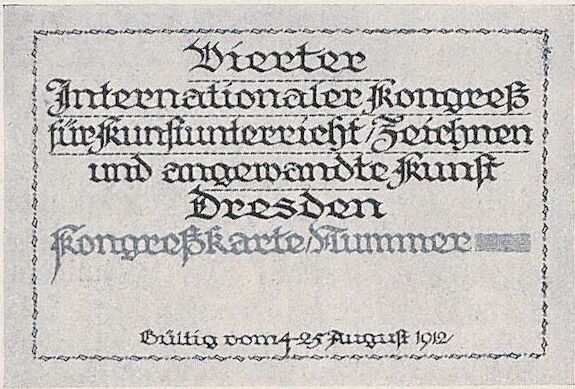 Vierter
Internationaler Kongreß
für Kunstunterricht/Zeichnen
und angewandte Kunst
Dresden
Kongreßkarte/Nummer
Gültig vom 4-25 August 1912/